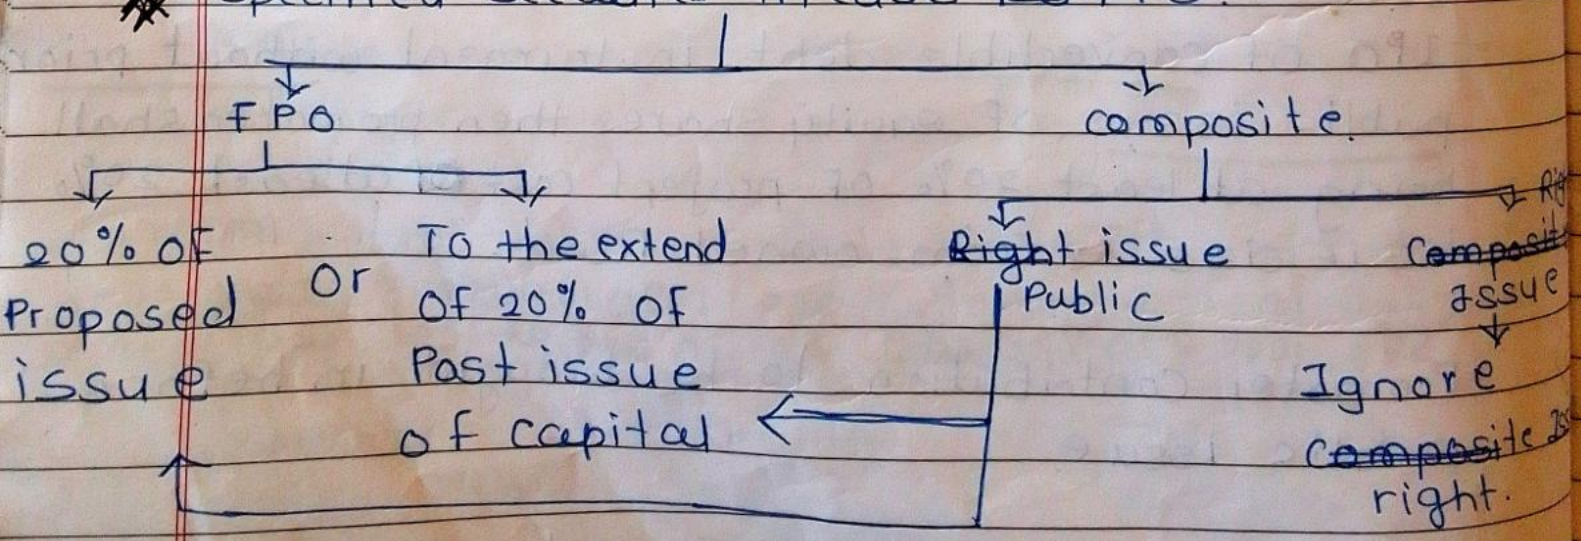 FPO
composite.
20% of
Proposed
issue
or
To the extend
of 20% of
Post issue
of capital
Right issue
Public
Composit
Issue
Ignore
Composite
right.